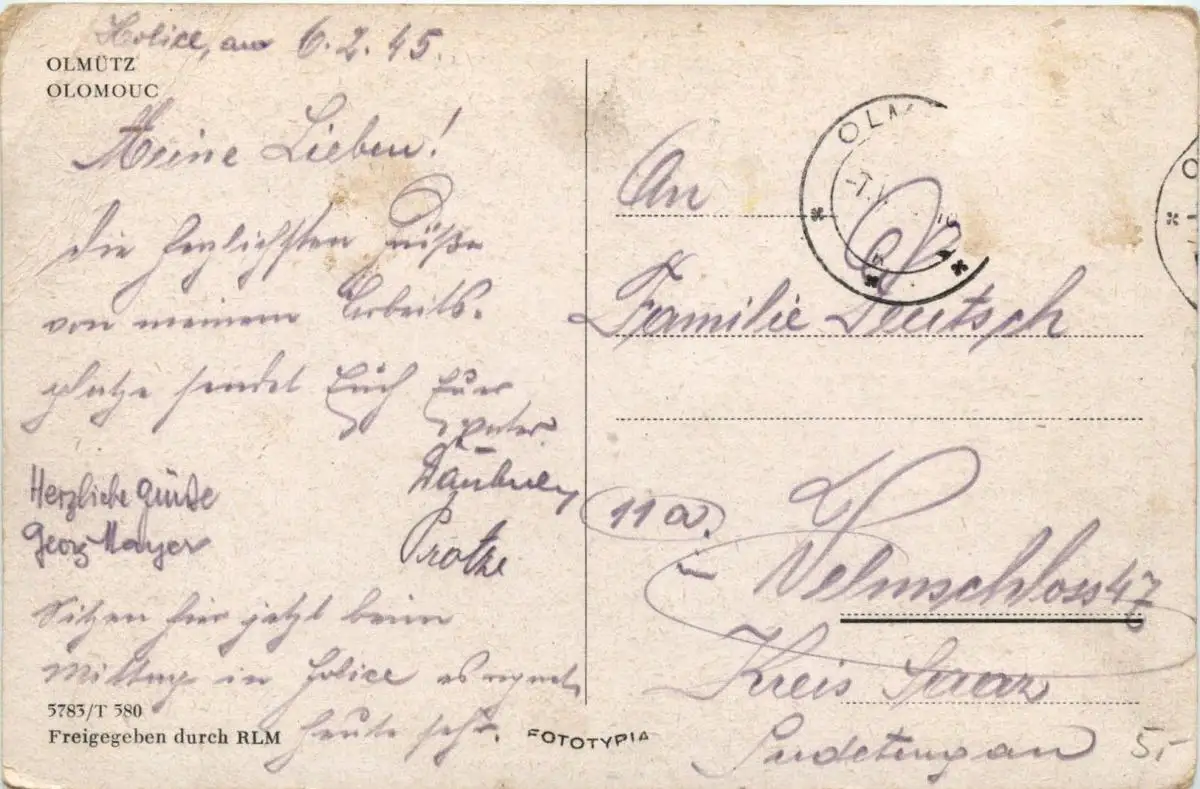 Holice, am 6.2.45.
OLMÜTZ
OLOMOUC
Meine Lieben!
die herzlichsten Grüße
von meinem Arbeits-
platze sendet Euch Euer
Vater.
Herzliche Grüße
Georg Mayer
Protze
Sitzen hier jetzt beim
Mittag in Holice es regnet
heute sehr.
5783/T 380
Freigegeben durch RLM
FOTOTYPIA
OLM
An
Familie Deutsch
11a
Welmschloss 47
Kreis Saaz
Sudetengau
5,-